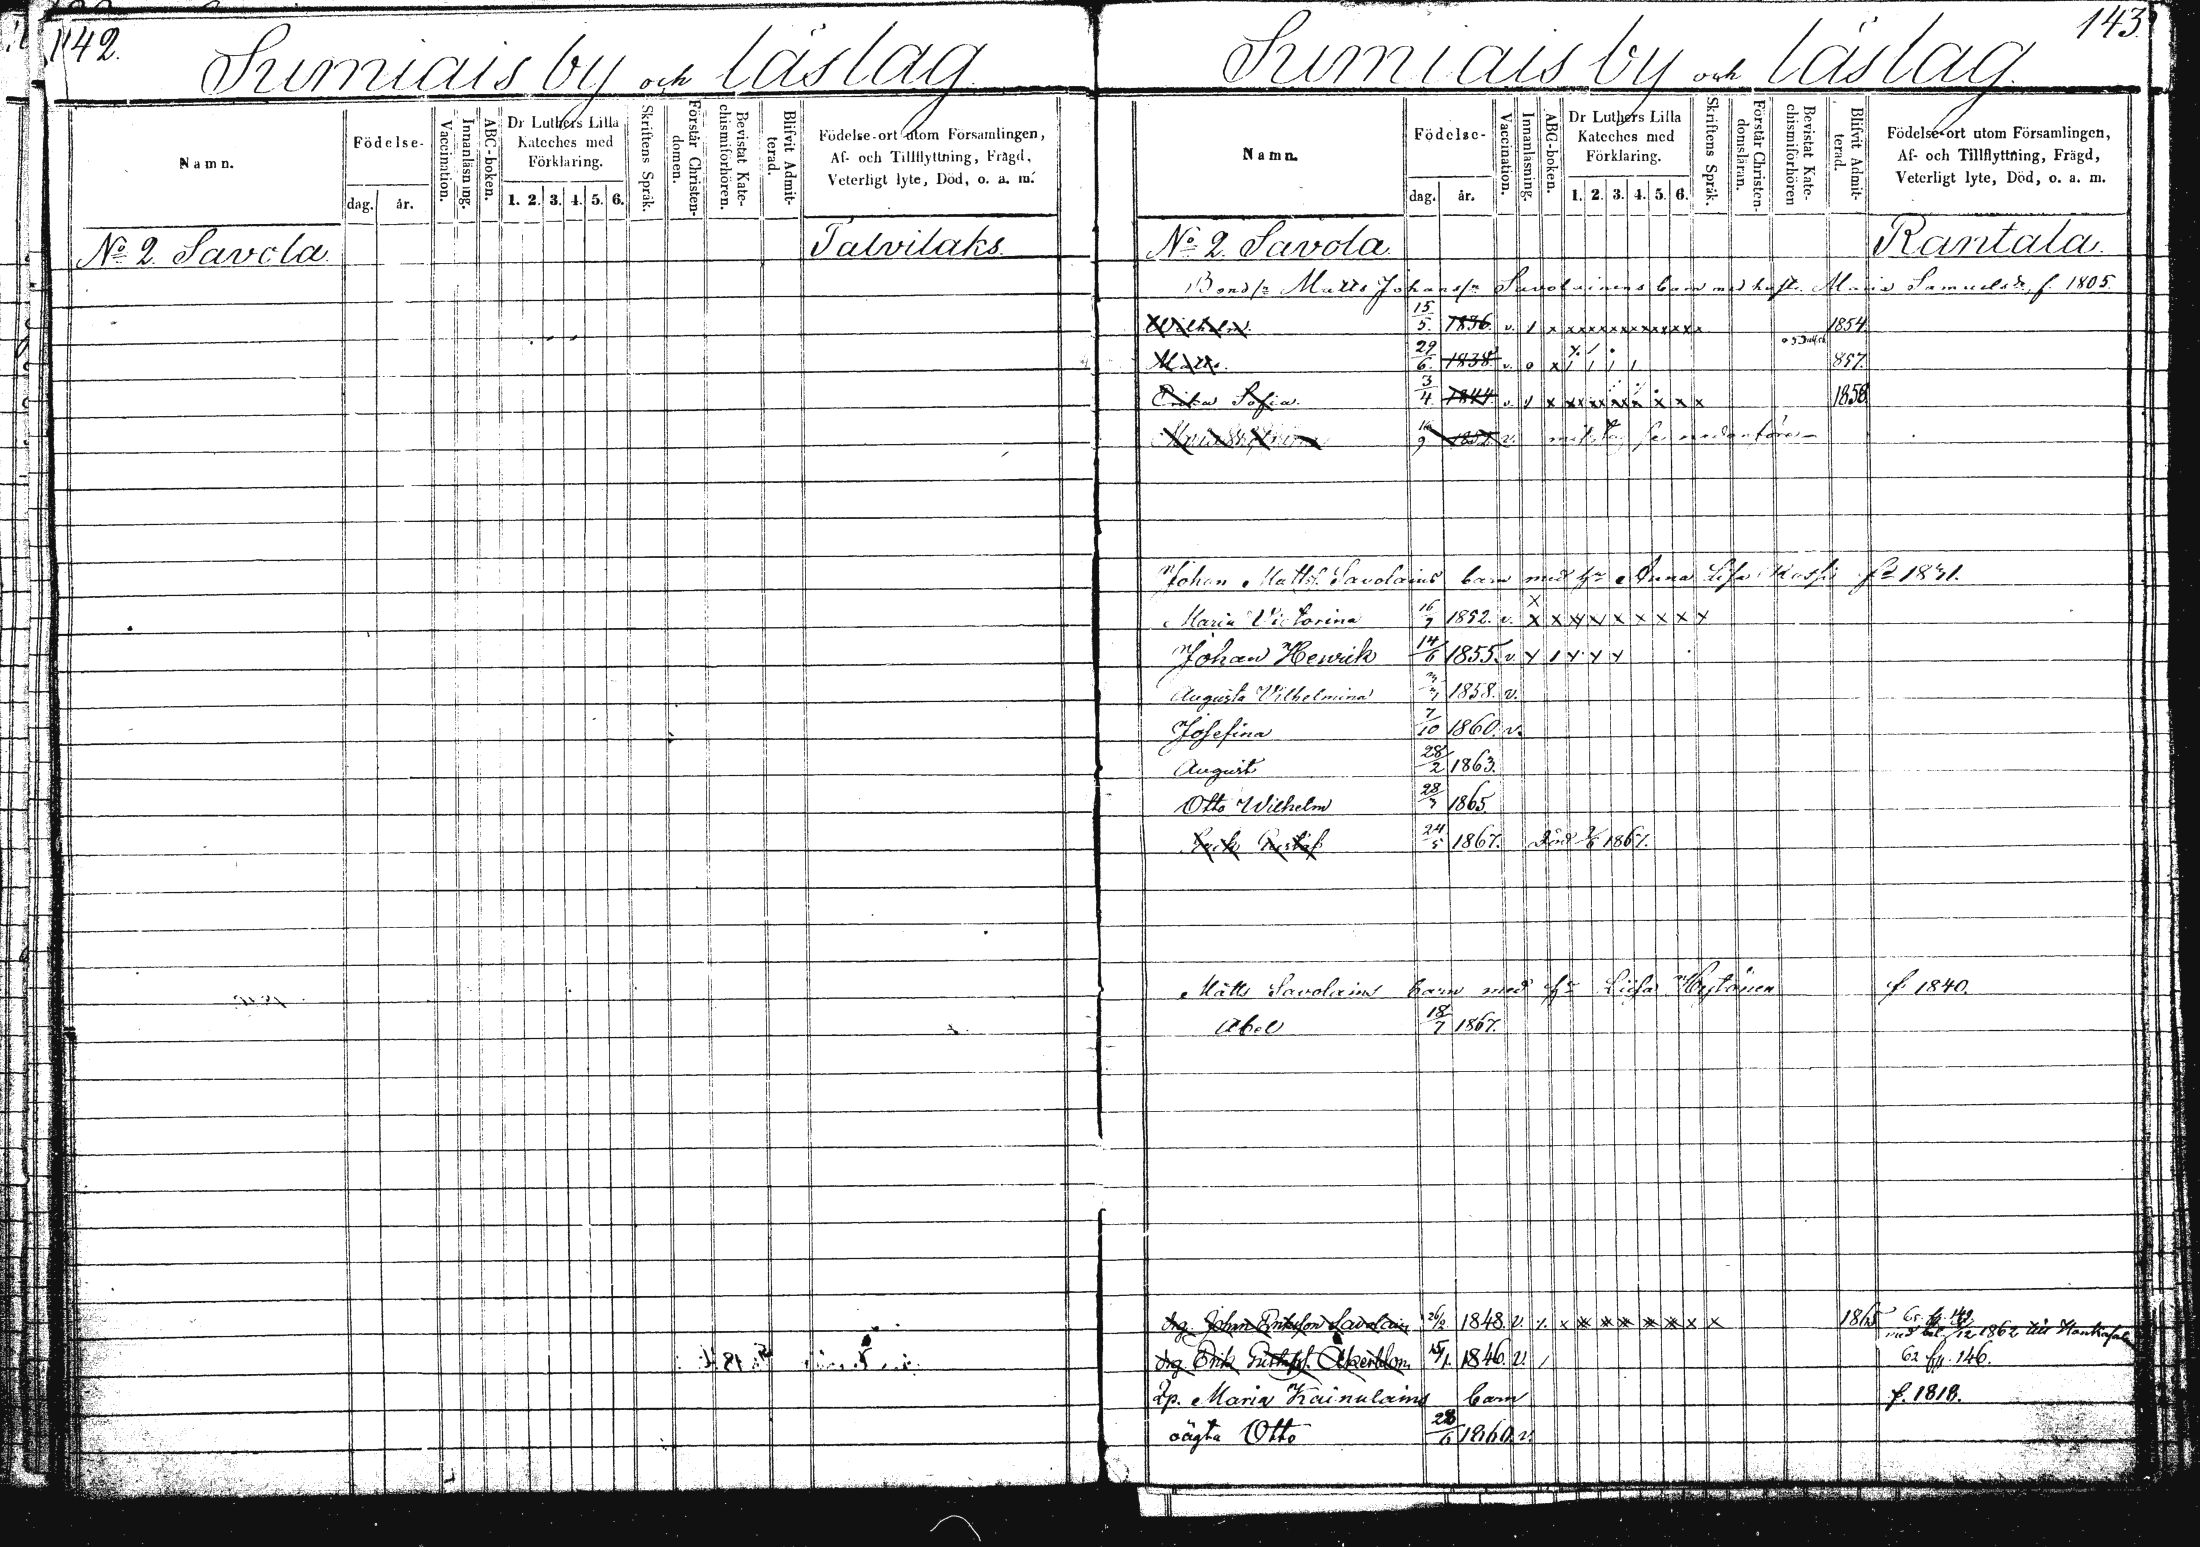 142.
Sumiais by och läslag
Namn.
Födelse-
dag. år.
Vaccination.
Innanläsning.
ABC-boken.
Dr Luthers Lilla Kateches med Förklaring.
1. 2. 3. 4. 5. 6.
Skriftens Språk.
Förstår Christendomen.
Bevistat Katechismiförhören.
Blifvit Admitterad.
Födelse-ort utom Församlingen,
Af- och Tillflyttning, Frägd,
Veterligt lyte, Död, o. a. m.
No 2 Savola Talvilaks.
143
Sumiais by och läslag.
Namn.
Födelse-
dag. år.
Vaccination.
Innanläsning.
ABC-boken.
Dr Luthers Lilla Kateches med Förklaring.
1. 2. 3. 4. 5. 6.
Skriftens Språk.
Förstår Christendomsläran.
Bevistat Katechismiförhören
Blifvit Admitterad.
Födelse-ort utom Församlingen,
Af- och Tillflyttning, Frägd,
Veterligt lyte, Död, o. a. m.
No 2 Savola. Rantala.
Matts Johans Savolainens barn med Maria Samuelsdr, f. 1805.
Wilhelm. 15/5. 1836. v. 1854.
Matts. 29/6. 1838. v. 857.
Erika Sofia. 3/4. 1844. v. 1858
9 1852 v.
Johan Matts. Savolains barn med Anna Lisa
Maria Victorina 16/7 1852. v. x x x x x x x x x
Johan Henrik 14/6 1855. v.
Augusta Vilhelmina 1858. v.
Josefina 7/10 1860. v.
August 28/2 1863.
Otto Wilhelm 28/3 1865
Erik Gustaf 24/5 1867. Död 1867.
Matts Savolains barn med Liisa Hytönen f. 1840.
Abel 18/7 1867.
drg. Johan Eriksson Savolain 26/2 1848. v. 1865 142
1862 till
drg. Erik Gustafs. Åkerblom 1846. v. 62 146.
Maria Kainulains barn f. 1818.
oägta Otto 28/6 1860. v.